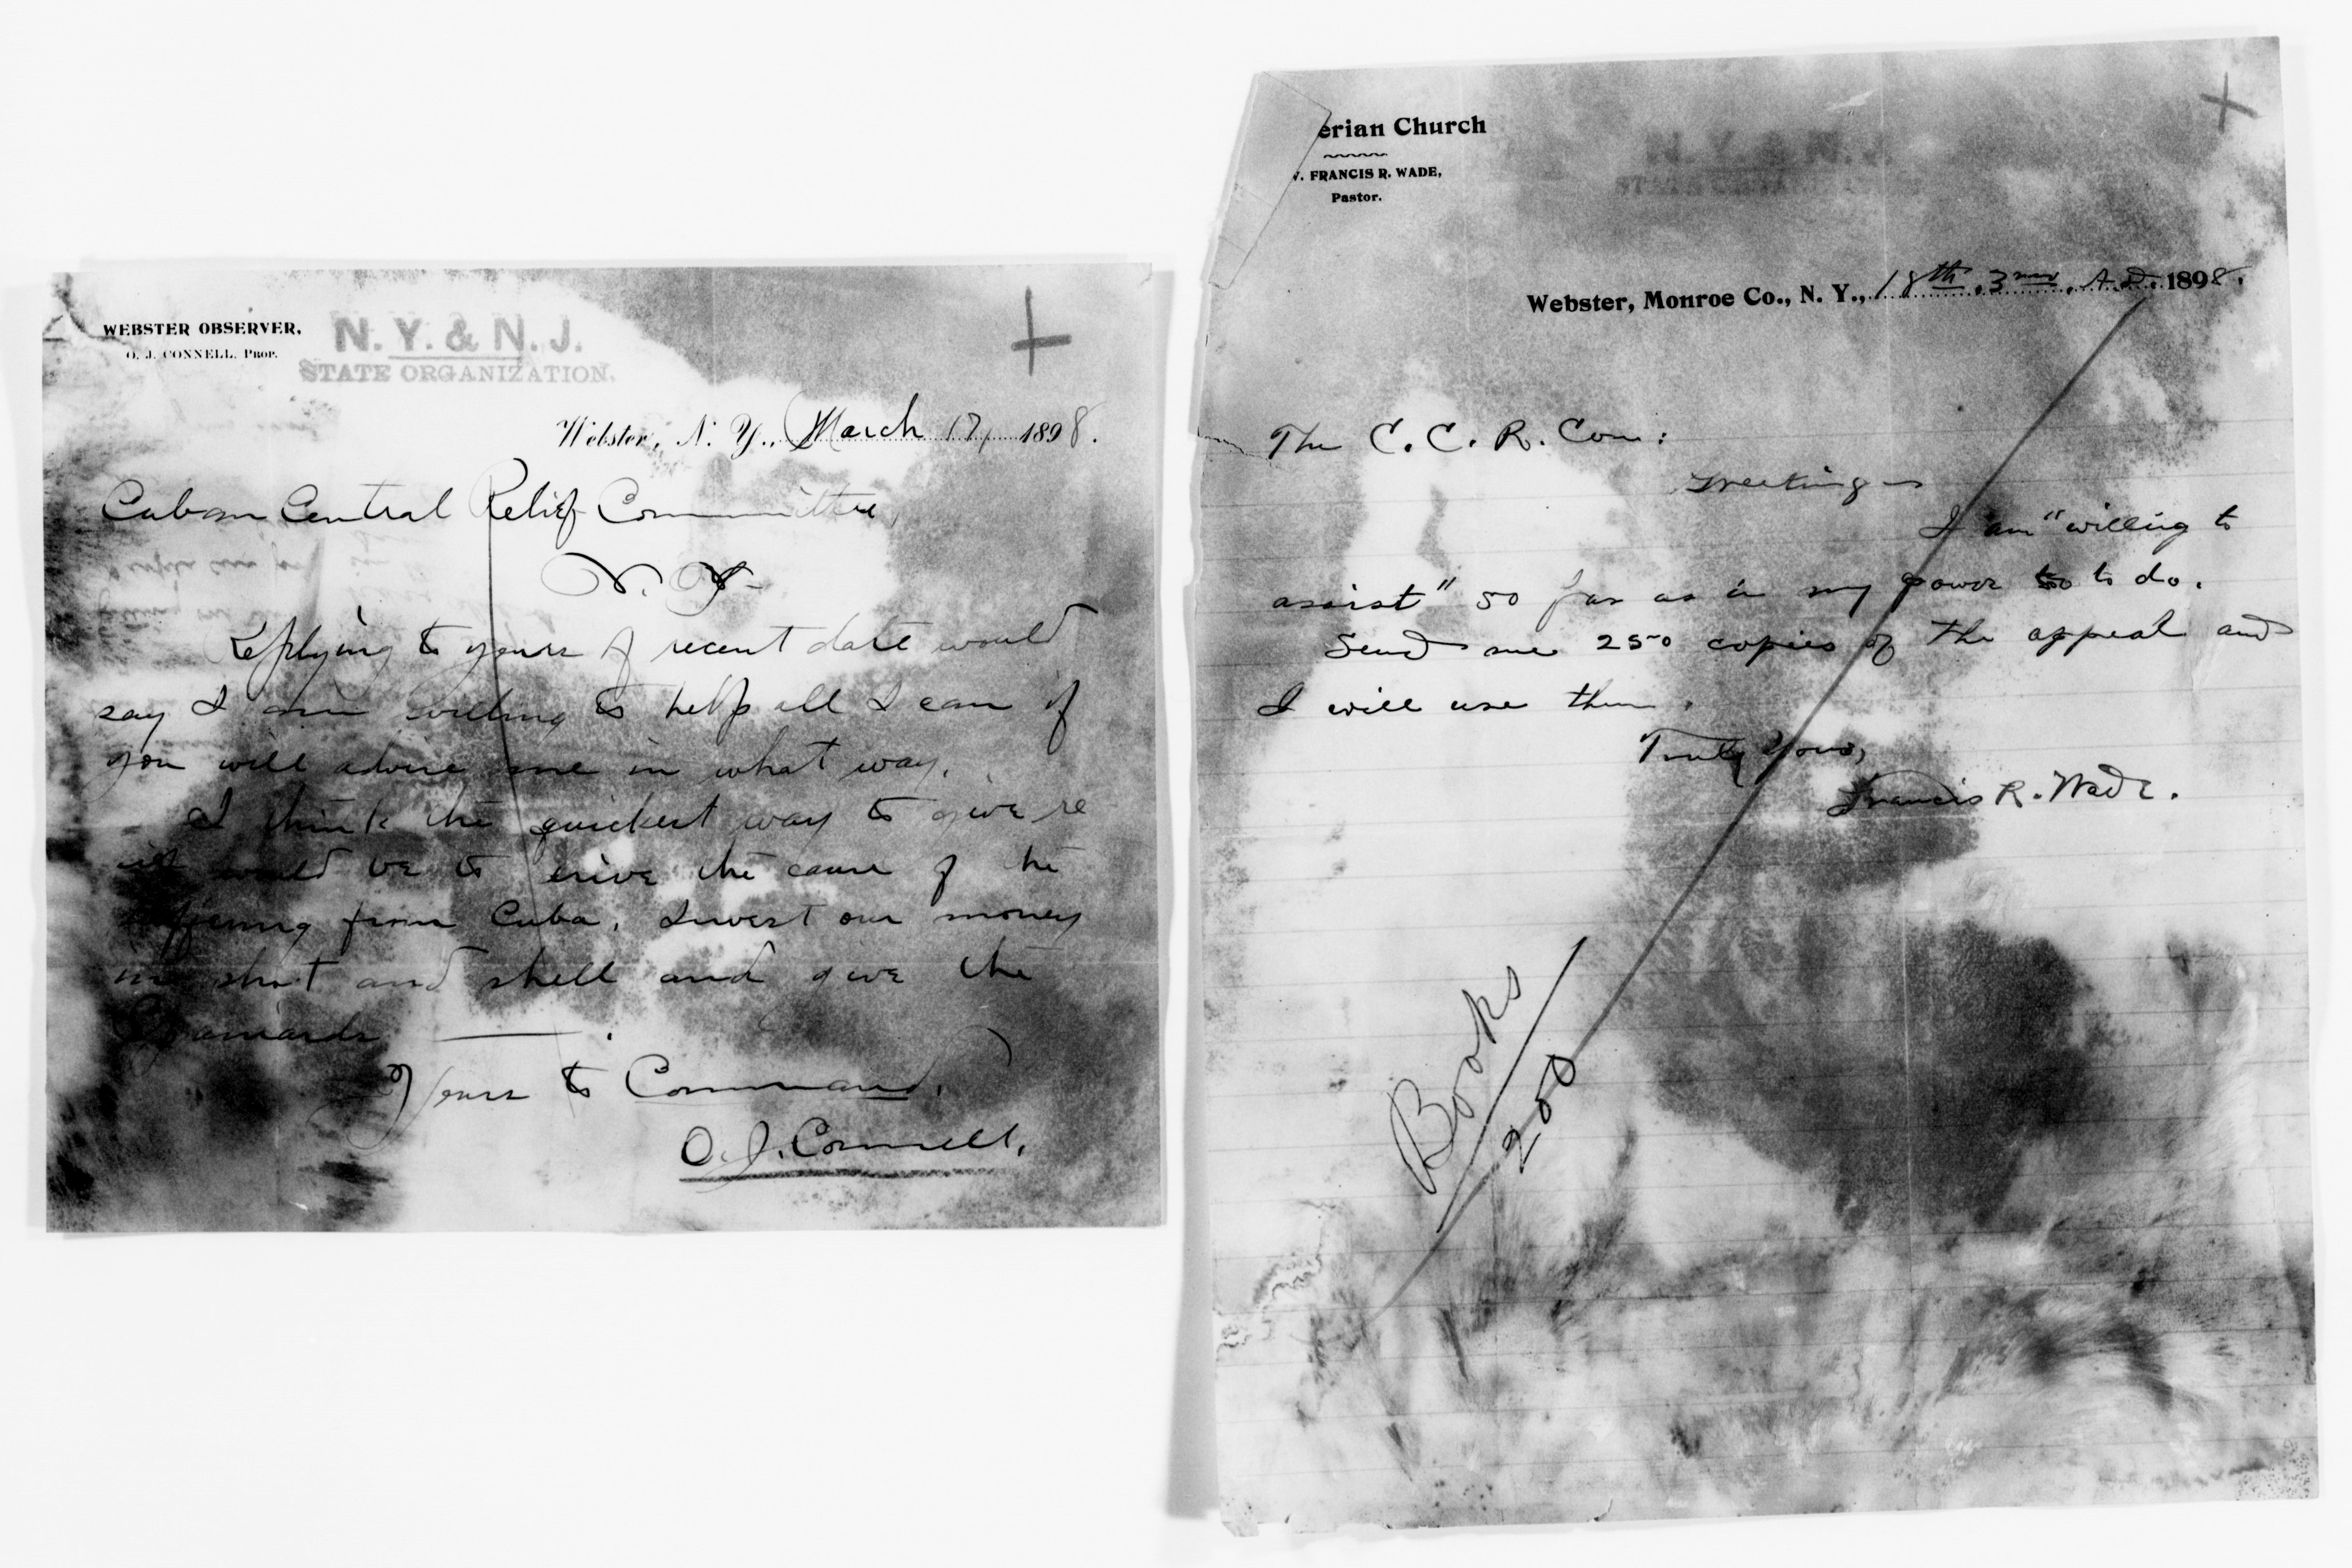 WEBSTER OBSERVER,
O. J. CONNELL, PROP.
N. Y. & N. J.
STATE ORGANIZATION.
Webster, N. Y., March 17, 1898.
Cuban Central Relief Committee,
N. Y.
Replying to yours of recent date would
say I am willing to help all I can if
you will advise me in what way.
I think the quickest way to give re
would be to drive the cause of the
suffering from Cuba. Invest our money
in shot and shell and give the
Spaniards ———.
Yours to Command,
O. J. Connell.
erian Church
V. FRANCIS R. WADE,
Pastor.
N. Y. & N. J.
STATE ORGANIZATION
Webster, Monroe Co., N. Y., 18th, 3rd, A.D. 1898.
The C. C. R. Com:
Greeting
I am "willing to
assist" so far as in my power to do.
Send me 250 copies of the appeal and
I will use them.
Truly Yours,
Francis R. Wade.
Books
200